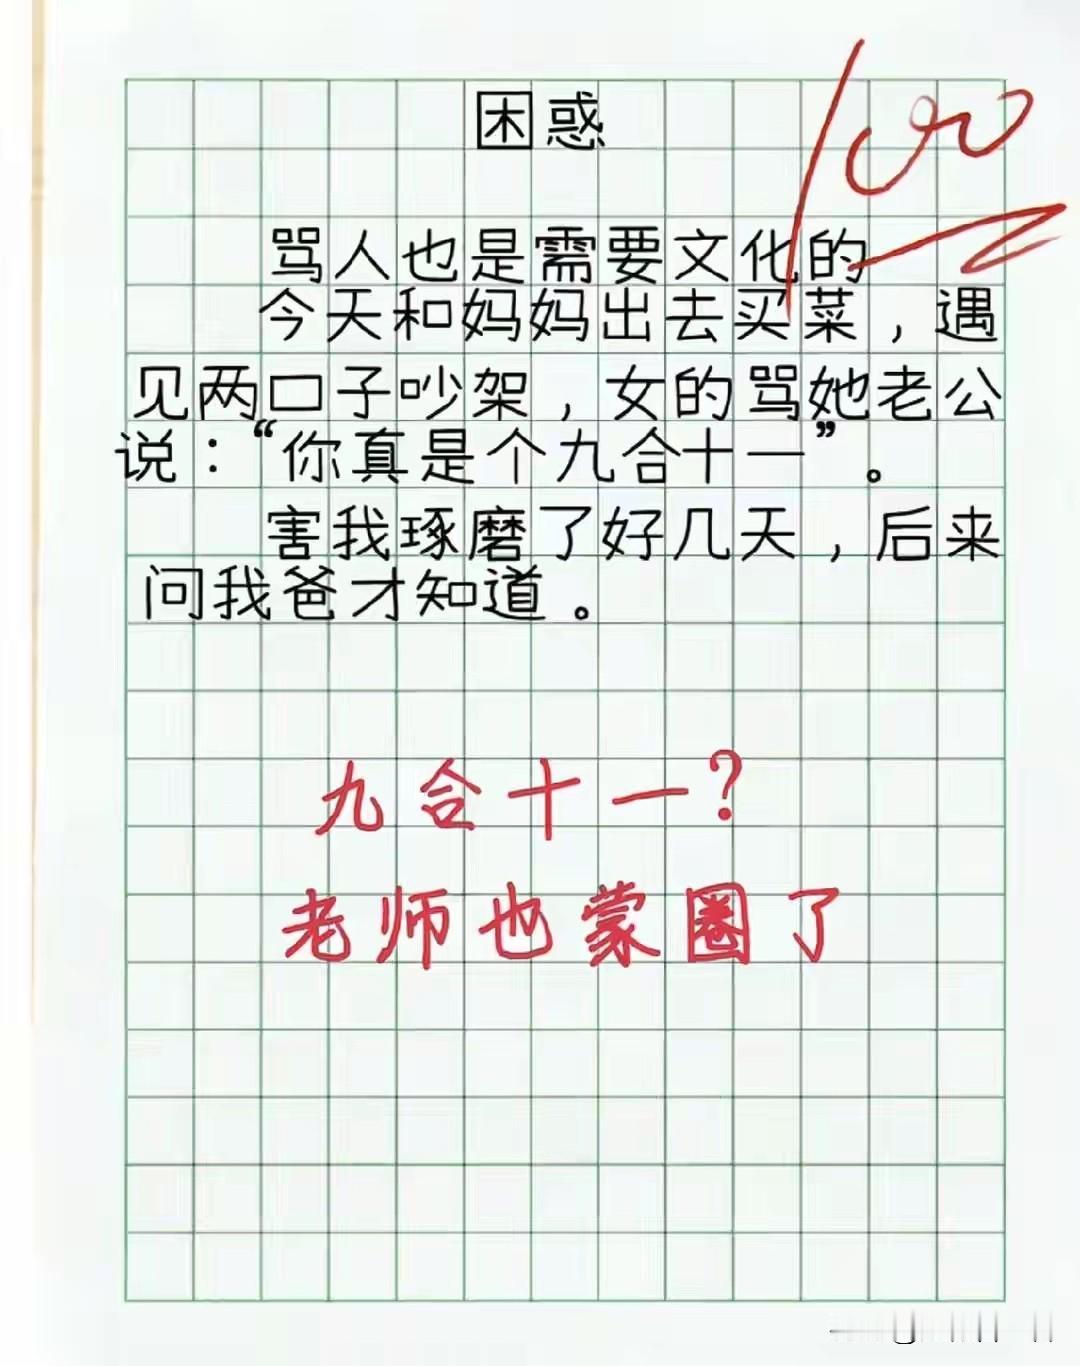 困惑
100
骂人也是需要文化的
今天和妈妈出去买菜，遇
见两口子吵架，女的骂她老公
说：“你真是个九合十一”。
害我琢磨了好几天，后来
问我爸才知道。
九合十一？
老师也蒙圈了